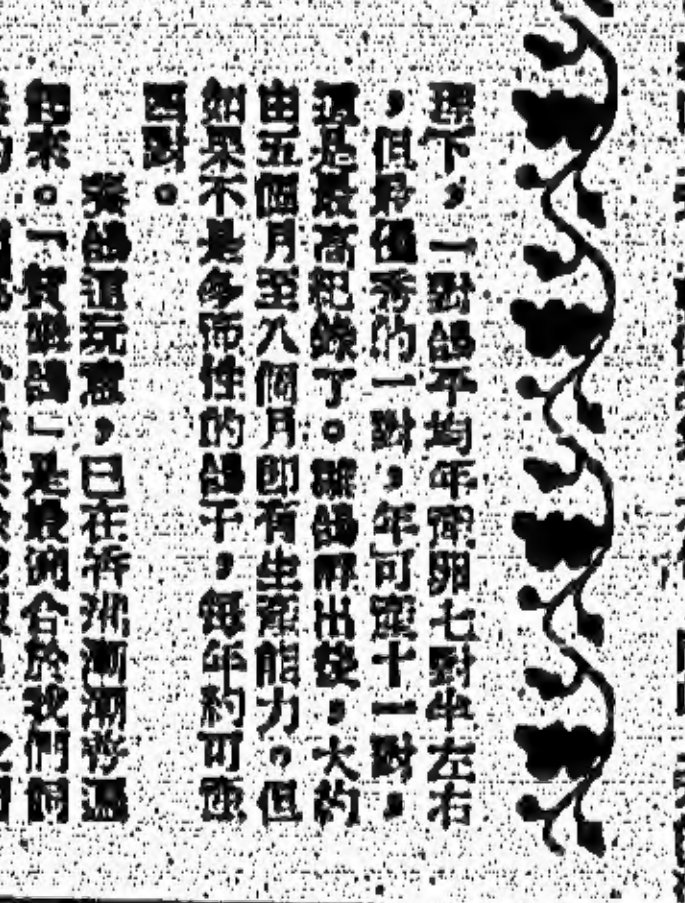 理下，一對鴿平均年產卵七對半左右
，但最優秀的一對，年可產十一對，
這是最高紀錄了。雛鴿孵出後，大約
由五個月至八個月即有生產能力。但
如果不是多產性的鴿子，每年約可產
四對。
養鴿這玩意，已在香港漸漸普遍
起來。「賀姆鴿」是最適合於我們飼